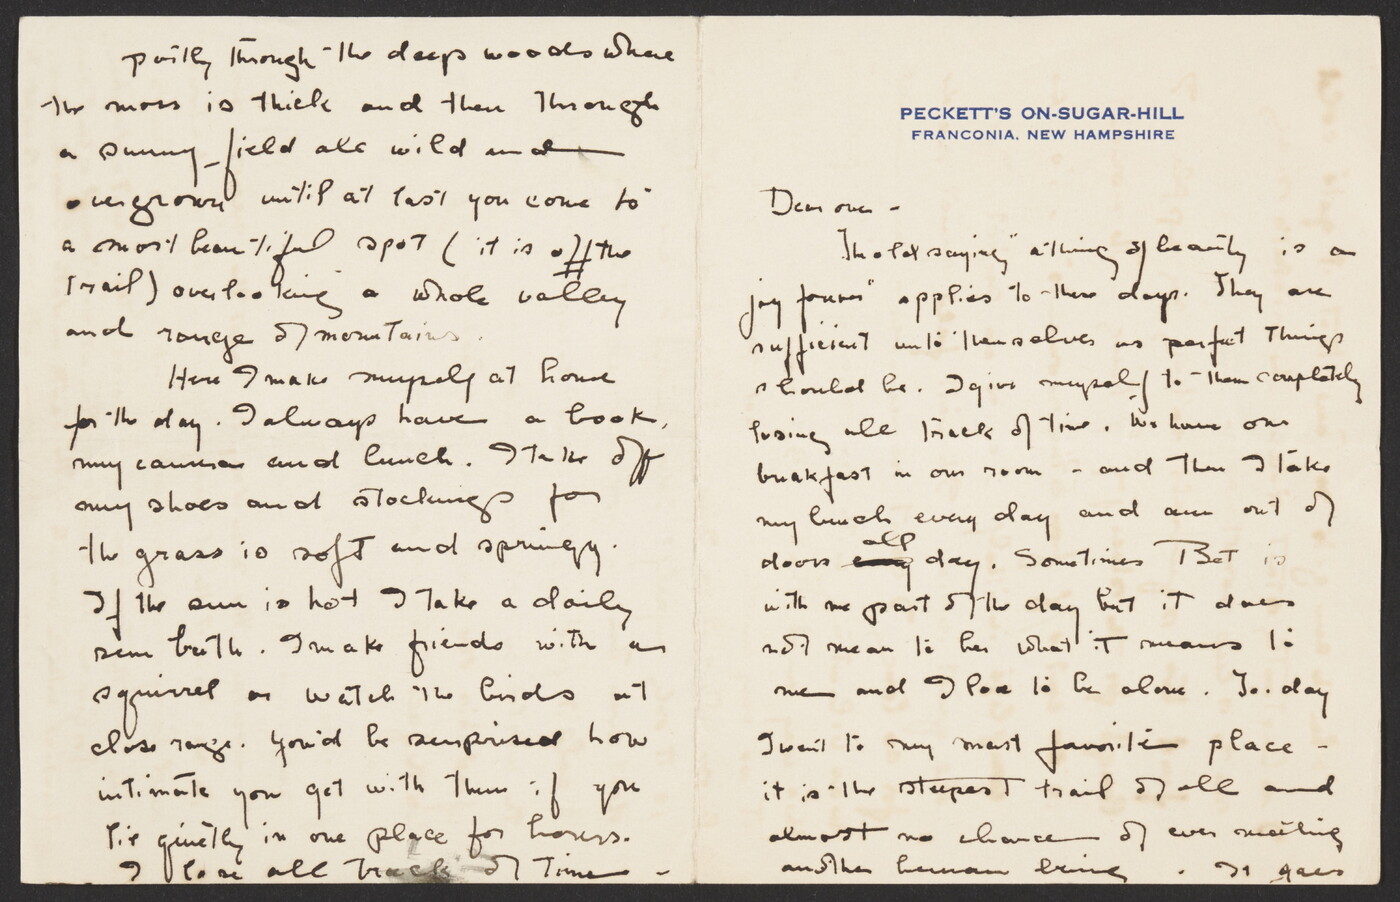 PECKETT'S ON-SUGAR-HILL
FRANCONIA. NEW HAMPSHIRE
Dear ones -
The old saying "a thing of beauty is a
joy forever" applies to these days. They are
sufficient unto themselves as perfect things
should be. I give myself to them completely
losing all track of time. We have our
breakfast in our room - and then I take
my lunch every day and am out of
doors all day. Sometimes Bet is
with me part of the day but it does
not mean to her what it means to
me and I love to be alone. To-day
I went to my most favorite place -
it is the steepest trail of all and
almost no chance of ever meeting
another human being. It goes
partly through the deep woods where
the moss is thick and then through
a sunny field all wild and
overgrown until at last you come to
a most beautiful spot (it is off the
trail) overlooking a whole valley
and range of mountains.
Here I make myself at home
for the day. I always have a book,
my camera and lunch. I take off
my shoes and stockings for
the grass is soft and springy.
If the sun is hot I take a daily
sun bath. I make friends with a
squirrel or watch the birds at
close range. You'd be surprised how
intimate you get with them if you
lie quietly in one place for hours.
I lose all track of time -